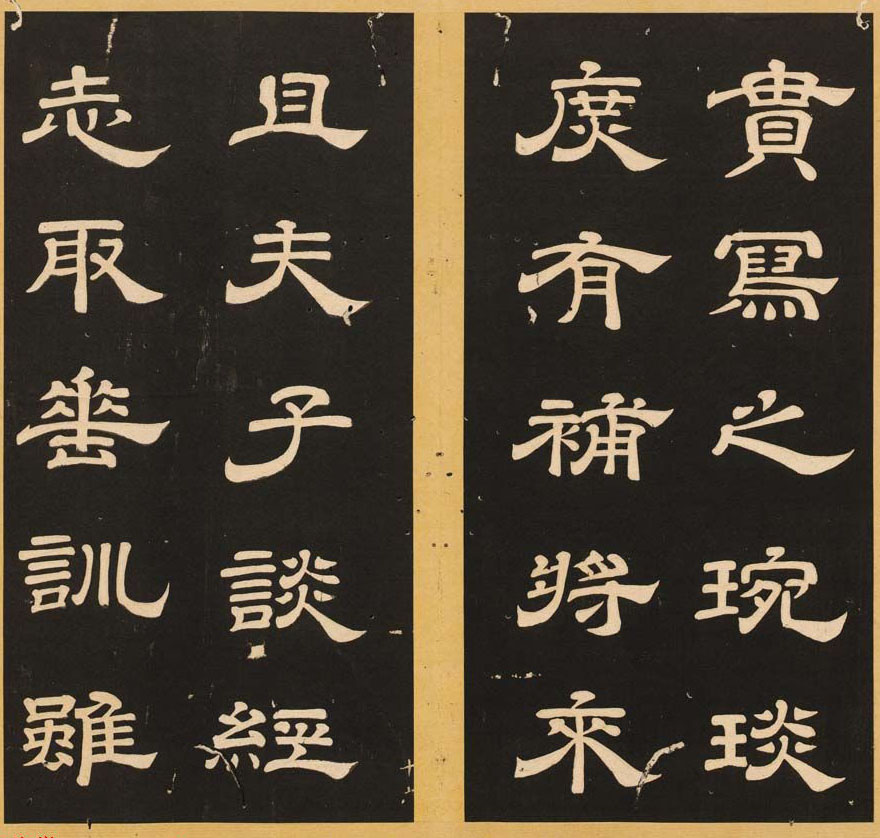 貴寫之琬琰
庶有補將來
且夫子談經
志取垂訓雖